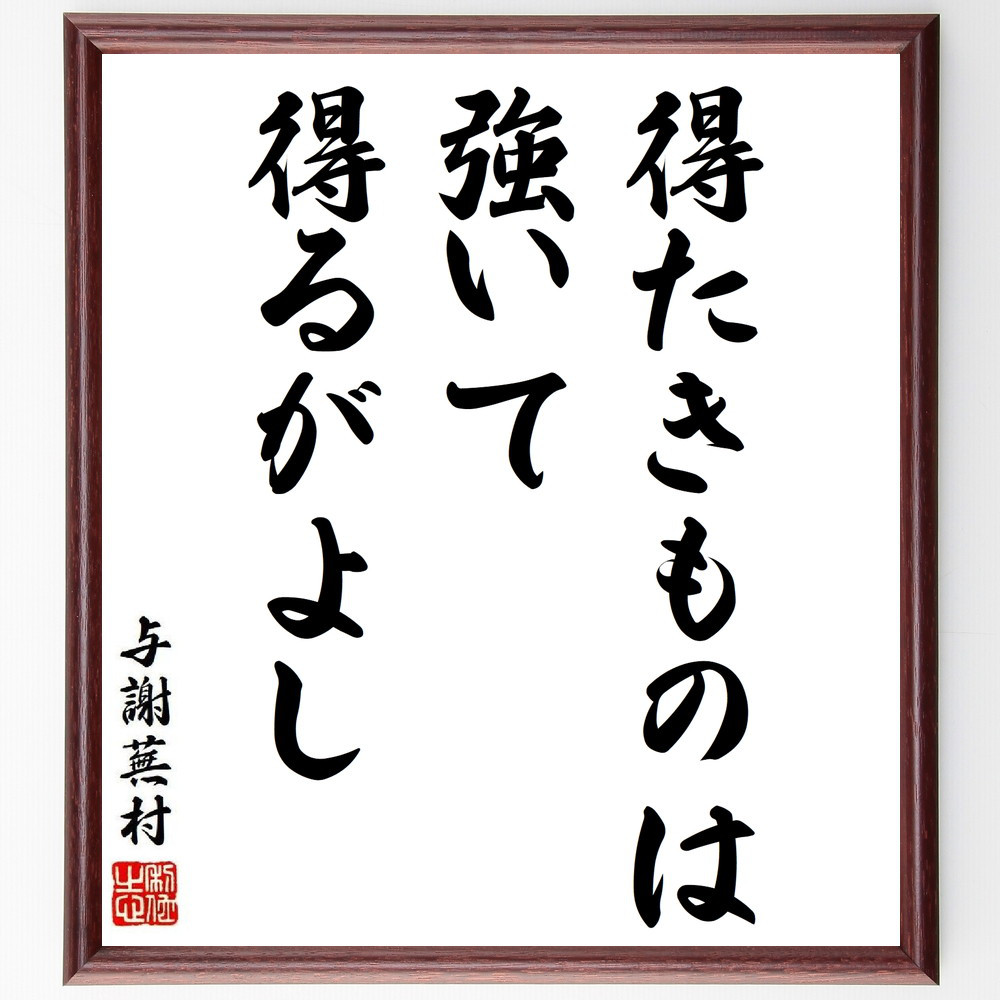 得たきものは
強いて
得るがよし
与謝蕪村